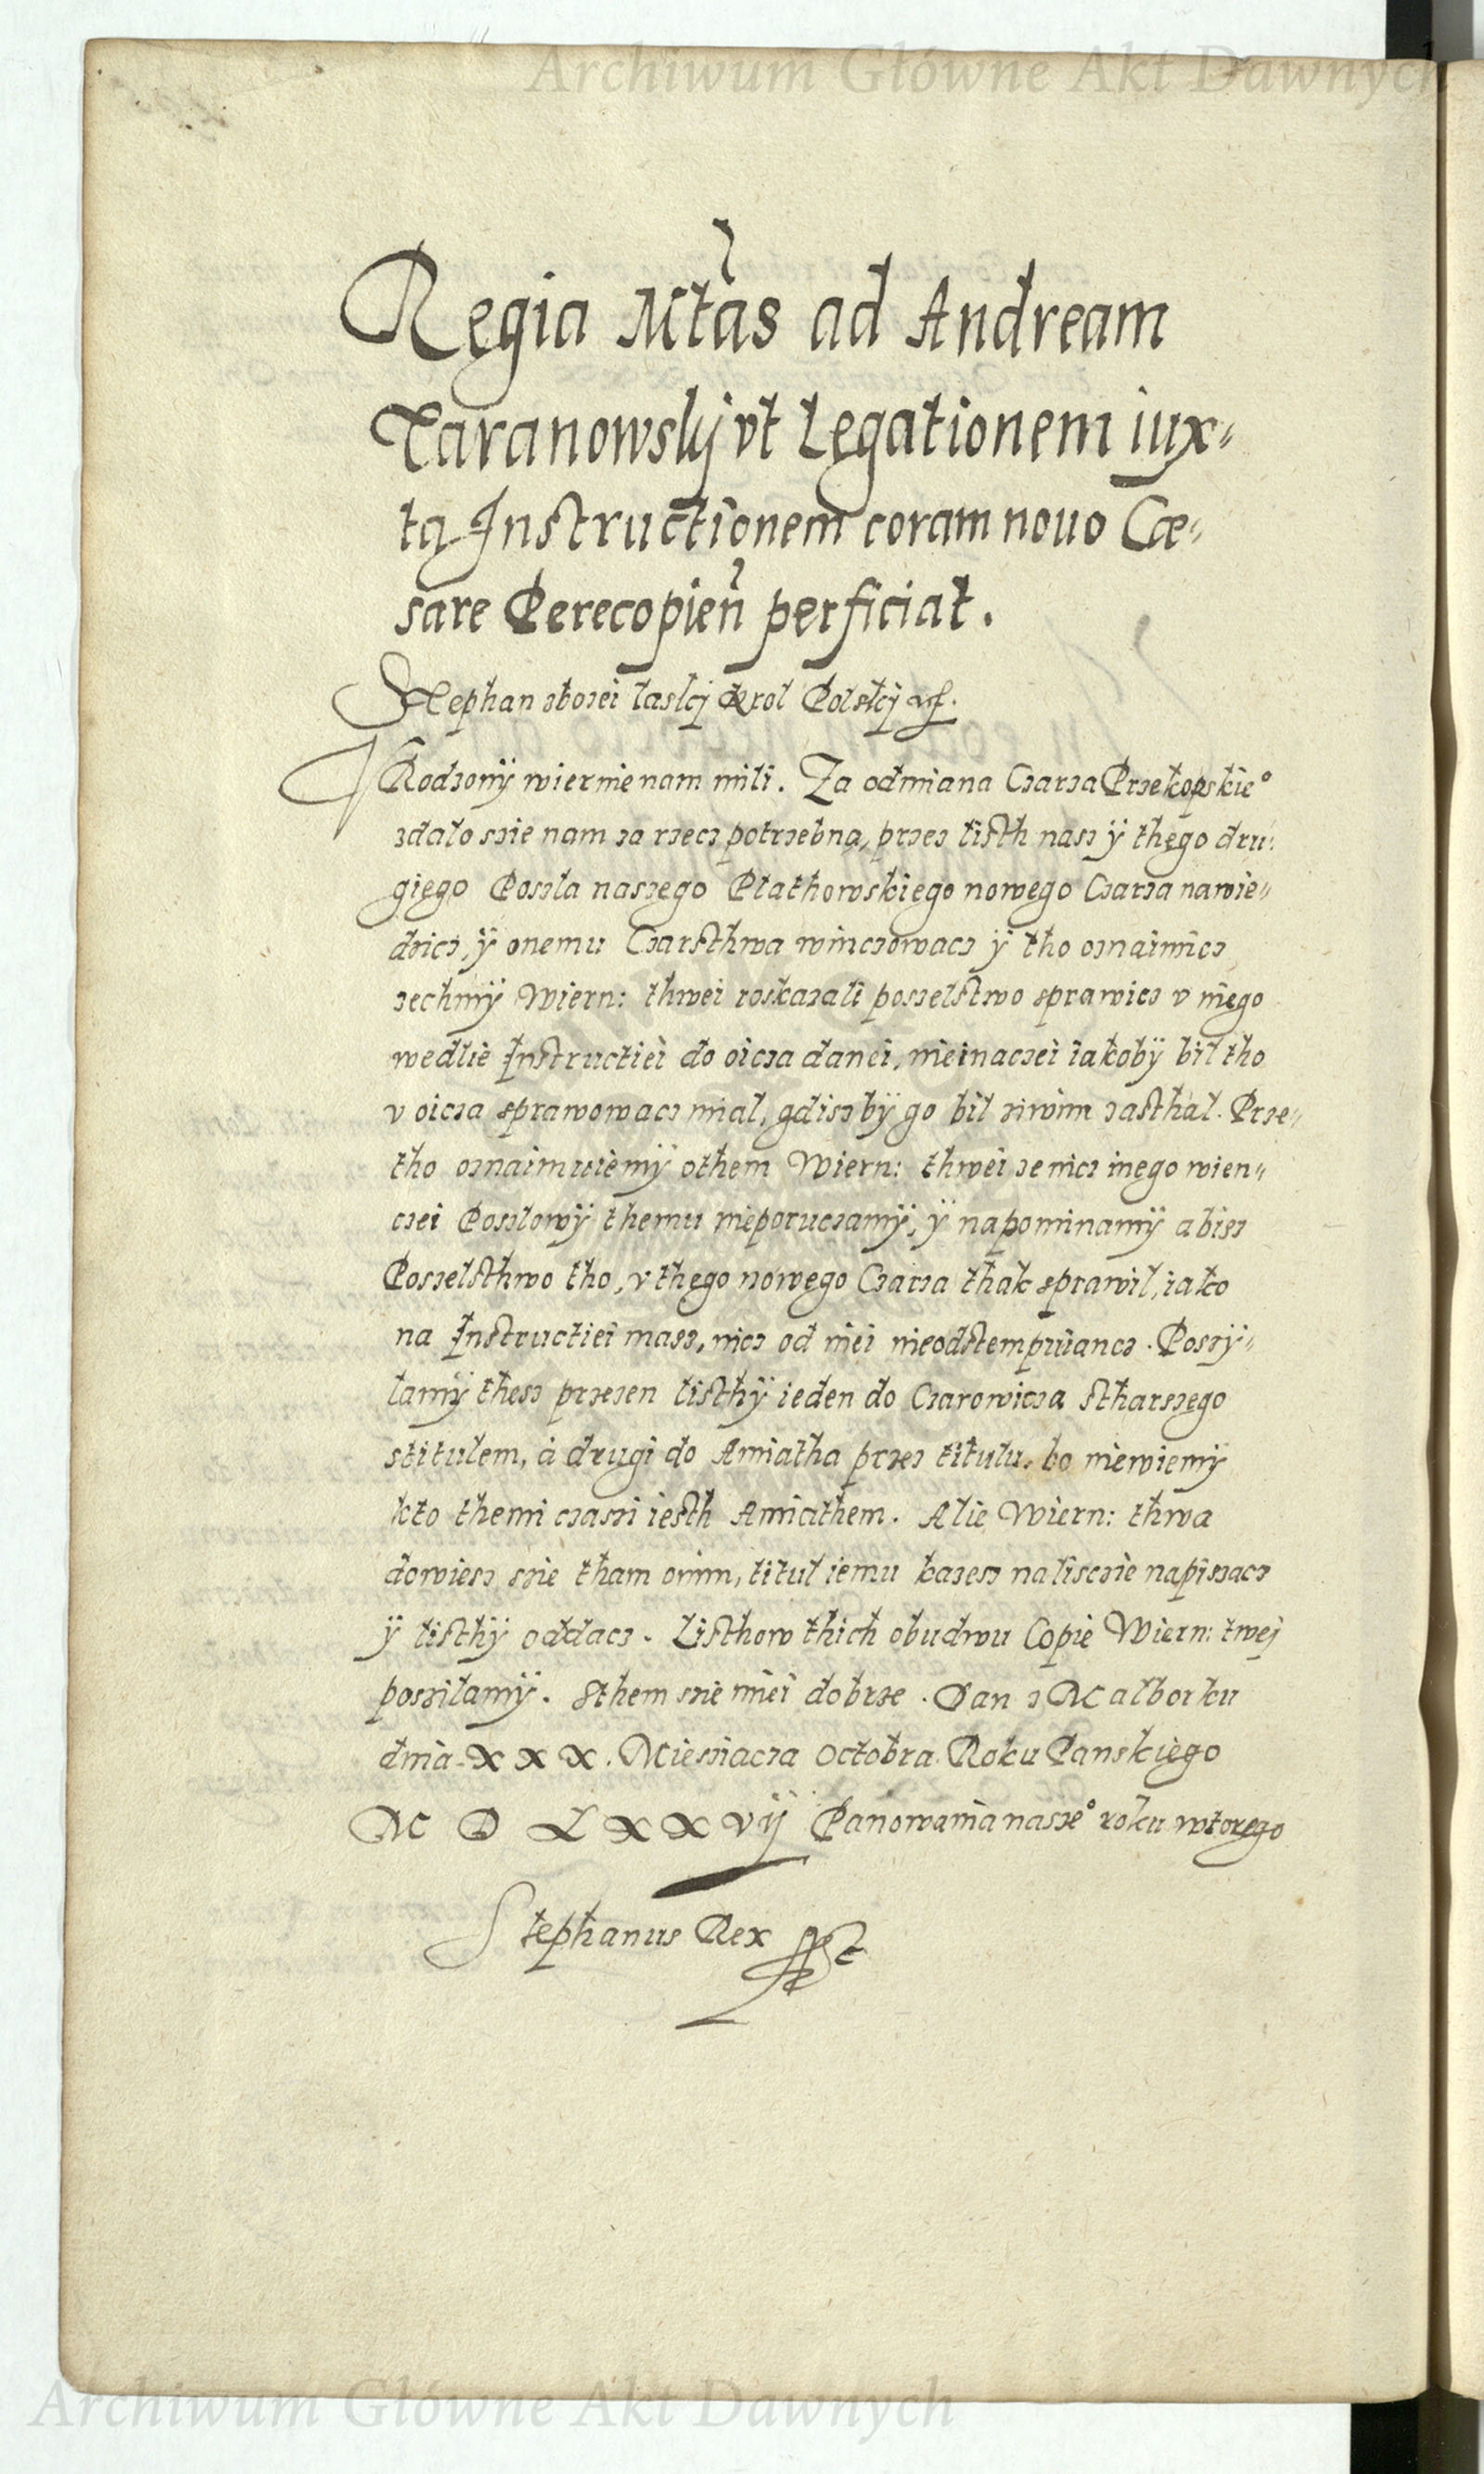 Archiwum Główne Akt Dawnych
Regia Mtas ad Andream
Taranowskij vt Legationem iux-
ta Instructionem coram nouo Cæ-
sare Perecopien perficiat.
Stephan zbozei laskij Krol Polskij
VRodzonÿ wiernie nam mili. Za odmiana Czarza Przekopskie°
zdało szie nam za rzecz potrzebną, przez listh nasz ÿ thego dru-
giego Poszla naszego Płathowskiego nowego Czarza nawie-
dzicz, ÿ onemu Czarsthwa winczowacz ÿ tho oznaimicz
zechmÿ Wiern: thwei roskazali poszelstwo sprawicz v niego
wedlie Instructiei do oicza danei, nieinaczei iakobÿ bil tho
v oicza sprawowacz mial, gdiszbÿ go bil ziwim zasthal. Prze-
tho oznaimuiemÿ othem Wiern: thwei ze nicz inego wien-
czei Poszlowÿ themu nieporuczamÿ, ÿ napominamÿ abisz
Poszelsthwo tho, v thego nowego Czarza thak sprawil, iako
na Instructiei masz, nicz od niei nieodstempuiancz. Poszÿ-
lamÿ thesz przezen listhÿ ieden do Czarowicza stharszego
stitulem, à drugi do Amiatha przez titulu, bo niewiemÿ
kto themi czaszi iesth Amiathem. Alie Wiern: thwa
dowiesz szie tham onim, titul iemu kazesz nalisczie napiszacz
ÿ listhÿ oddacz. Listhow thich obudwu Copie Wiern: twej
poszilamÿ. Sthem szie miei dobrze. Dan z Malborku
dnia XXX. Miesziacza Octobra Roku Panskiego
M D L X X vij Panowania nasze° roku wtorego
Stephanus Rex
Archiwum Główne Akt Dawnych